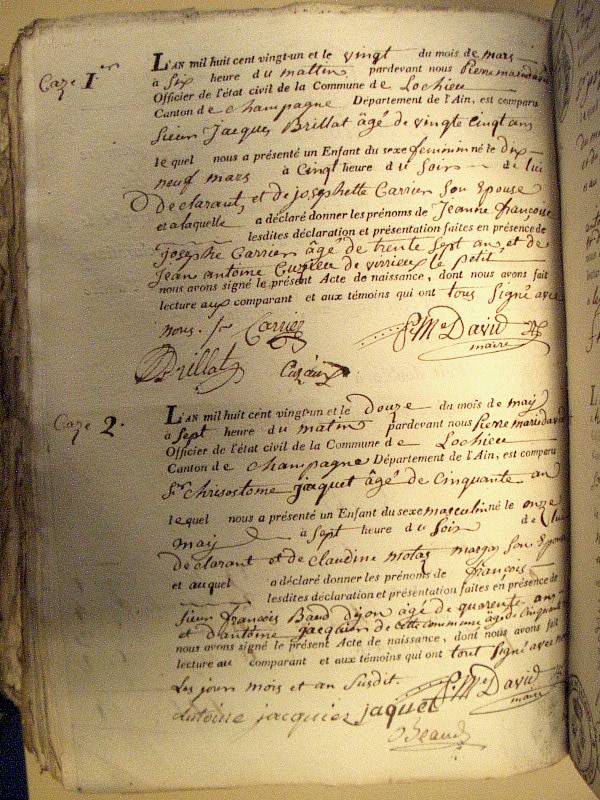 Caze 1er
L'AN mil huit cent vingt-un et le vingt du mois de mars
à Six heure du mattin pardevant nous Pierre marie david
Officier de l'état civil de la Commune de Lochieu
Canton de Champagne Département de l'Ain, est comparu
Sieur Jacques Brillat âgé de vingte Cinqt an
lequel nous a présenté un Enfant du sexe feminin né le dix
neuf mars à Cinqt heure du Soir de lui
declarant et de josephette Carrier Son Epouse
et a laquelle a déclaré donner les prénoms de Jeanne françoise
lesdites déclaration et présentation faites en présence de
josephe Carrier âgé de trente Sept an, et de
jean antoine Cuzieu de virrieux le petit
nous avons signé le présent Acte de naissance, dont nous avons fait
lecture aux comparant et aux témoins qui ont tous Signé avec
nous. Carrier
P. Me David
maire
Brillat
Caze 2.
L'AN mil huit cent vingt-un et le Douze du mois de may
à Sept heure du matin pardevant nous Pierre marie david
Officier de l'état civil de la Commune de Lochieu
Canton de Champagne Département de l'Ain, est comparu
Sr Chrisostome jaquet âgé de Cinquante an
lequel nous a présenté un Enfant du sexe masculin né le onze
may à Sept heure du Soir de lui
declarant et de claudine Son Epouse
et auquel a déclaré donner les prénoms de françois
lesdites déclaration et présentation faites en présence de
Sieur françois Baud dijon âgé de quarente an
et d'antoine jacquier de cette commune âgé de Cinquante
nous avons signé le présent Acte de naissance, dont nous avons fait
lecture au comparant et aux témoins qui ont tout Signé avec nous
Les jour mois et an Susdit P. Me David
maire
antoine jacquier jaquet
Beaud